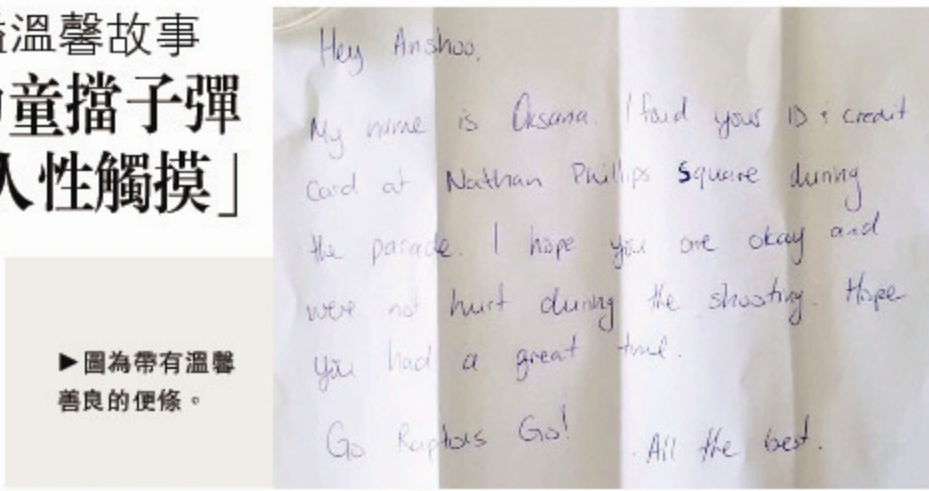 溫馨故事
童擋子彈
人性觸摸」
▶圖為帶有溫馨
善良的便條。
Hey Anshoo,
My name is Oksana. I foud your ID & credit
Card at Nathan Phillips Square during
the parade. I hope you are okay and
were not hurt during the shooting. Hope
you had a great time.
Go Raptors Go!
All the best.